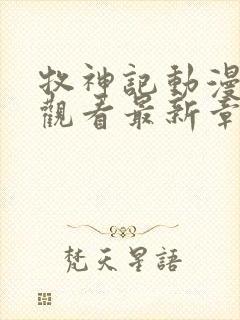 牧神記動漫
觀看最新章
梵天星語